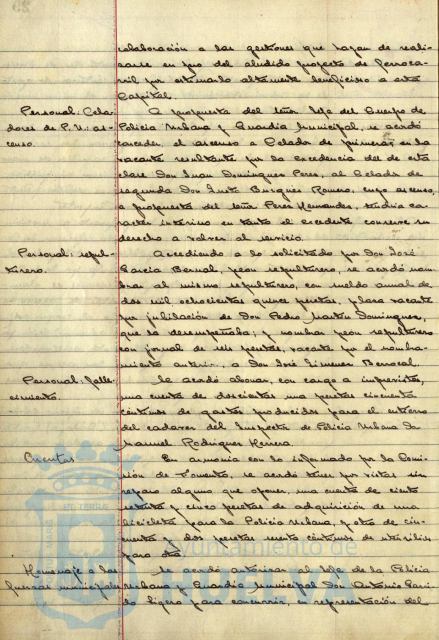 colaboración a las gestiones que hayan de reali-
zarse en pro del aludido proyecto de ferroca-
rril por estimarlo altamente beneficioso a esta
Capital.
Personal: Cela-
dores de P. U: as-
censo.
A propuesta del Señor Jefe del Cuerpo de
Policía Urbana y Guardia Municipal, se acordó
conceder, el ascenso a Celador de primera, en la
vacante resultante por la excedencia del de esta
clase Don Juan Domínguez Pérez, al Celador de
segunda Don Justo Burgues Romero, cuyo ascenso,
a propuesta del Señor Pérez Hernández, tendría ca-
rácter interino en tanto el excedente conserve su
derecho a volver al servicio.
Personal: sepul-
turero.
Accediendo a lo solicitado por Don José
García Bernal, peón sepulturero, se acordó nom-
brar al mismo sepulturero, con sueldo anual de
dos mil ochocientas quince pesetas, plaza vacante
por jubilación de Don Pedro Martín Domínguez,
que la desempeñaba; y nombrar peón sepulturero
con jornal de seis pesetas, vacante por el nombra-
miento anterior, a Don José Jimenez Berrocal.
Personal: falle-
cimiento.
Se acordó abonar, con cargo a imprevistos,
una cuenta de doscientas una pesetas cincuenta
céntimos de gastos producidos para el entierro
del cadáver del Inspector de Policía Urbana Don
Manuel Rodríguez Herrera.
Cuentas
En armonía con lo informado por la Comi-
sión de Fomento, se acordó tener por vistas sin
reparo alguno que oponer, una cuenta de ciento
setenta y cinco pesetas de adquisición de una
bicicleta para la Policía Urbana, y otra de cin-
cuenta y dos pesetas sesenta céntimos de utensilios
para
Homenaje a las
Guerras municipales
Se acordó autorizar al Jefe de la Policía
Urbana y Guardia Municipal Don Antonio Garri-
do Ligero para concurrir, en representación del
Ayuntamiento de
HUELVA